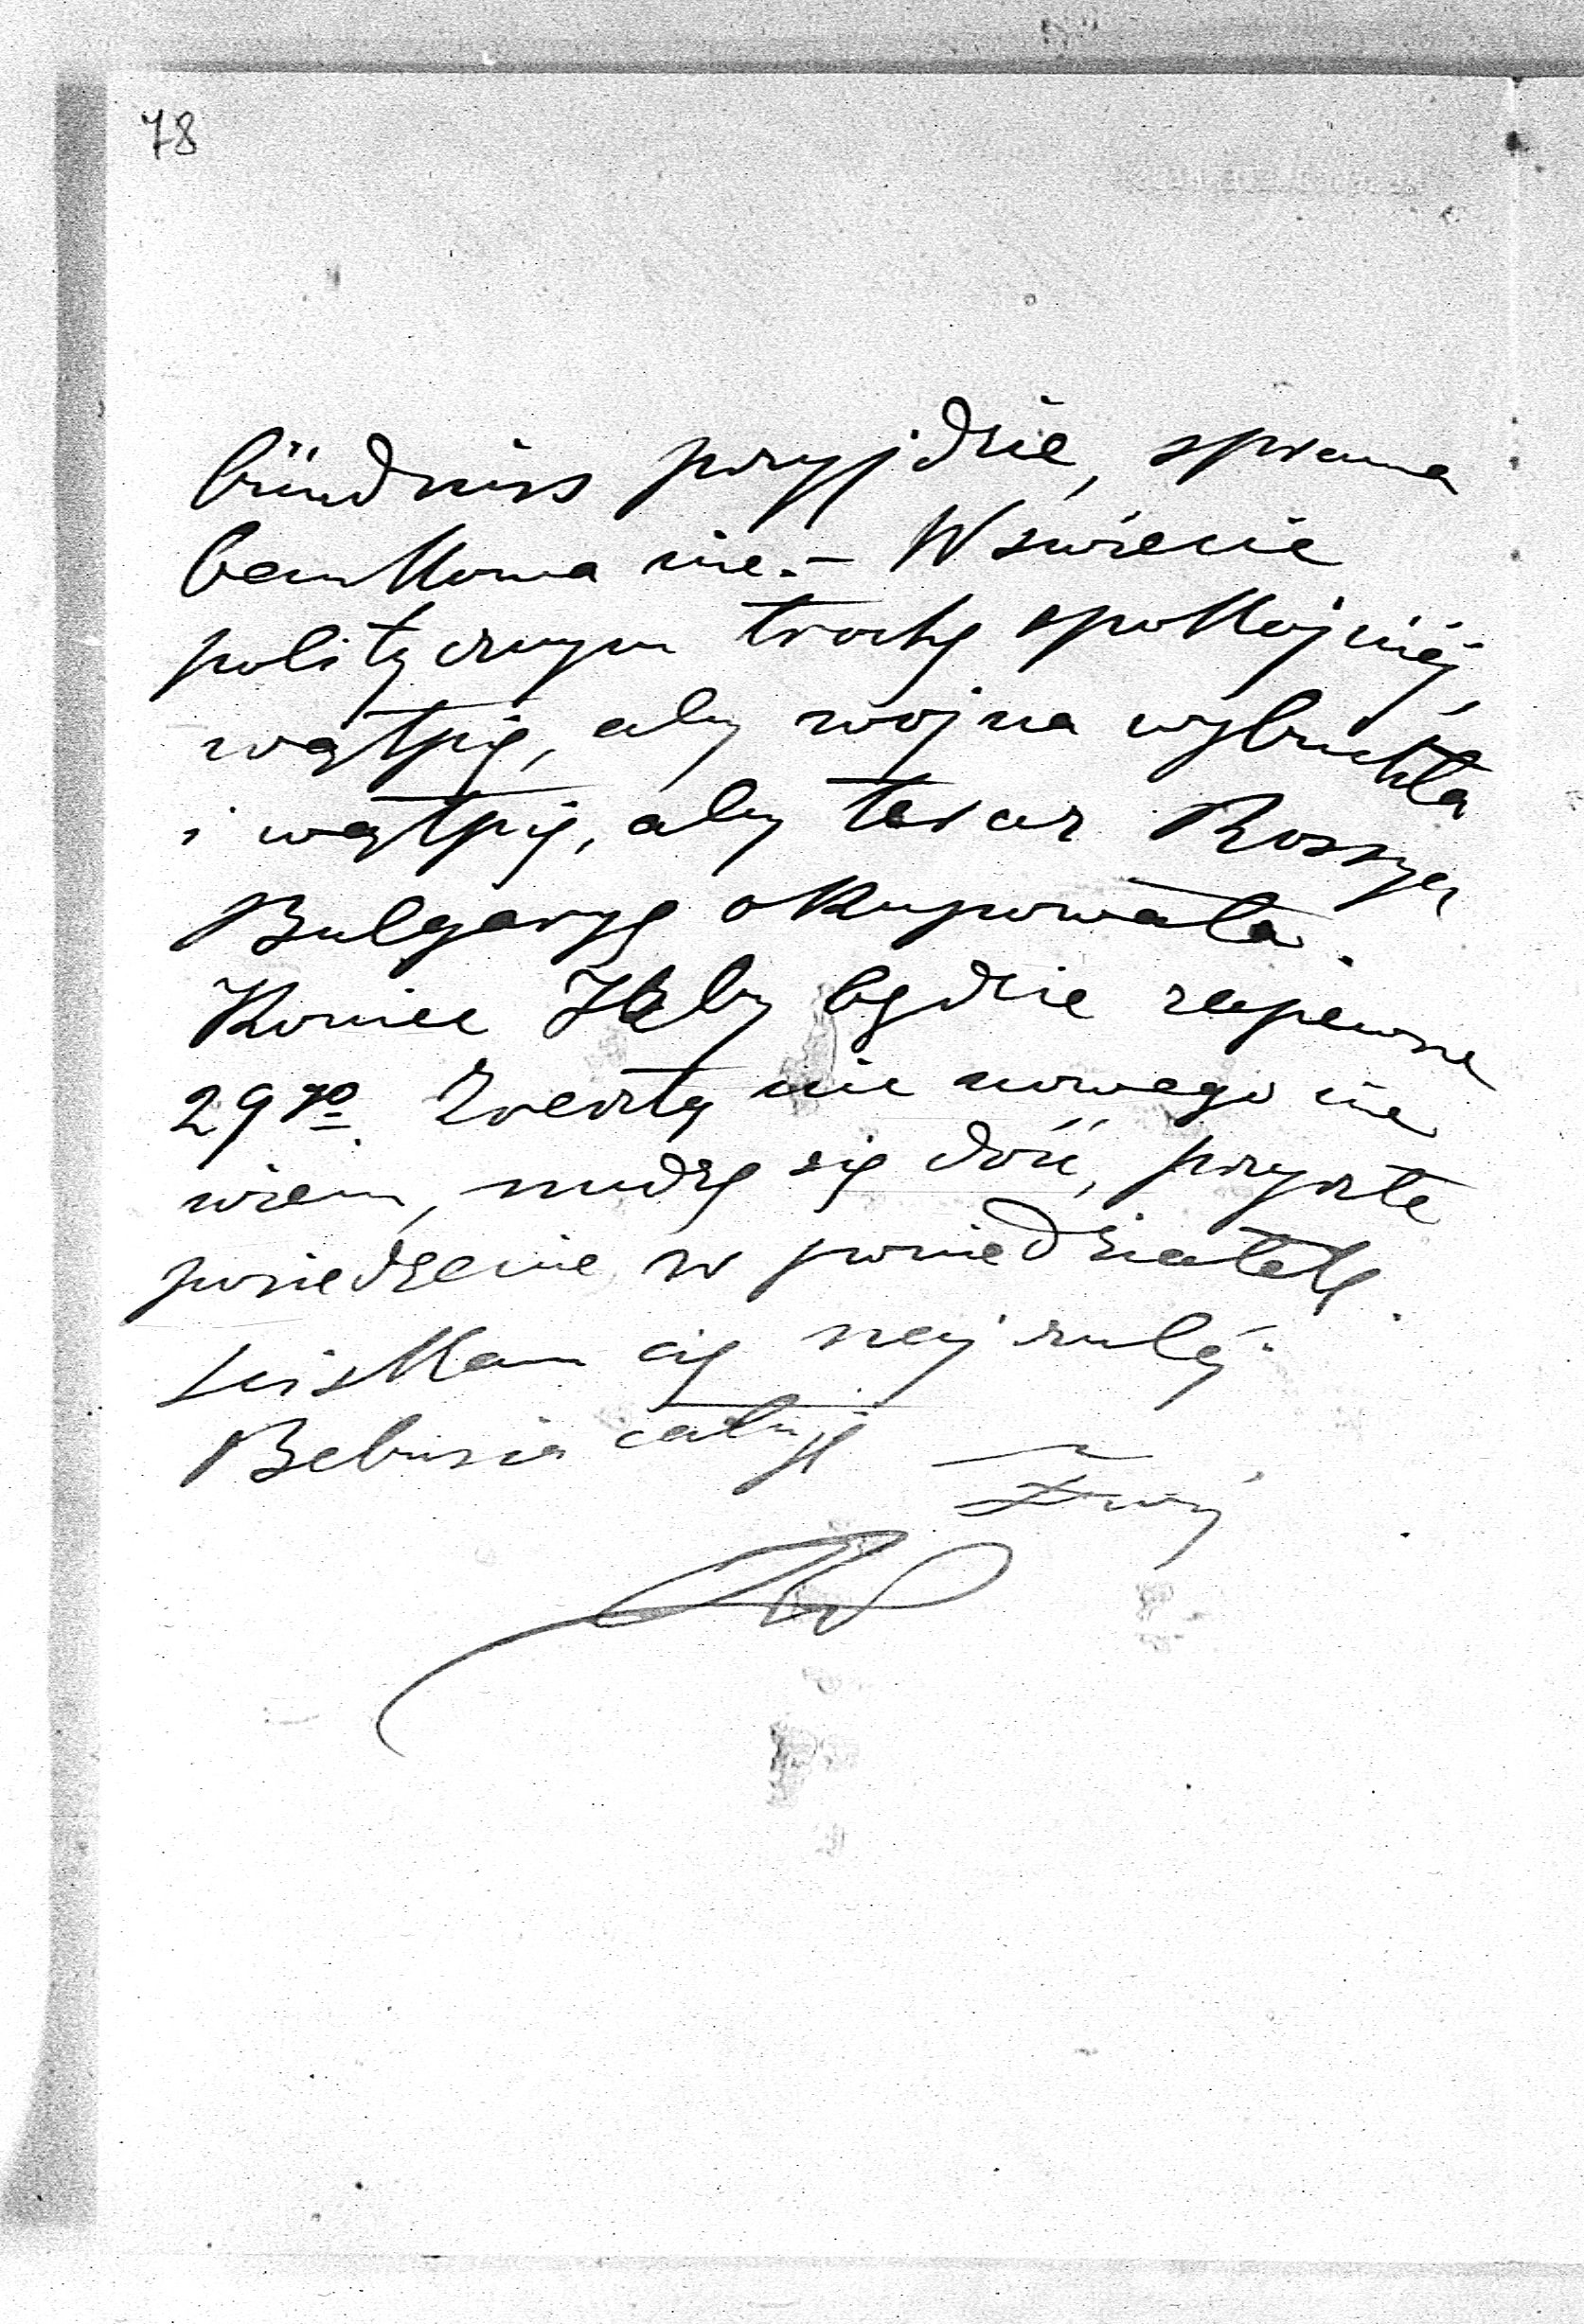 78
bündniss przyjdzie, sprawa
bankowa nie. – W świecie
politycznym trochę spokojniéj,
wątpię, aby wojna wybuchła
i wątpię, aby teraz Rossya
Bulgaryę okupowała.
Koniec Izby będzie zapewne
29go. Zresztą nic nowego nie
wiem, nudzę się dość, przyszłe
posiedzenie w poniedziałek.
Ściskam cię najczuléj.
Bebusia całuję
Twój